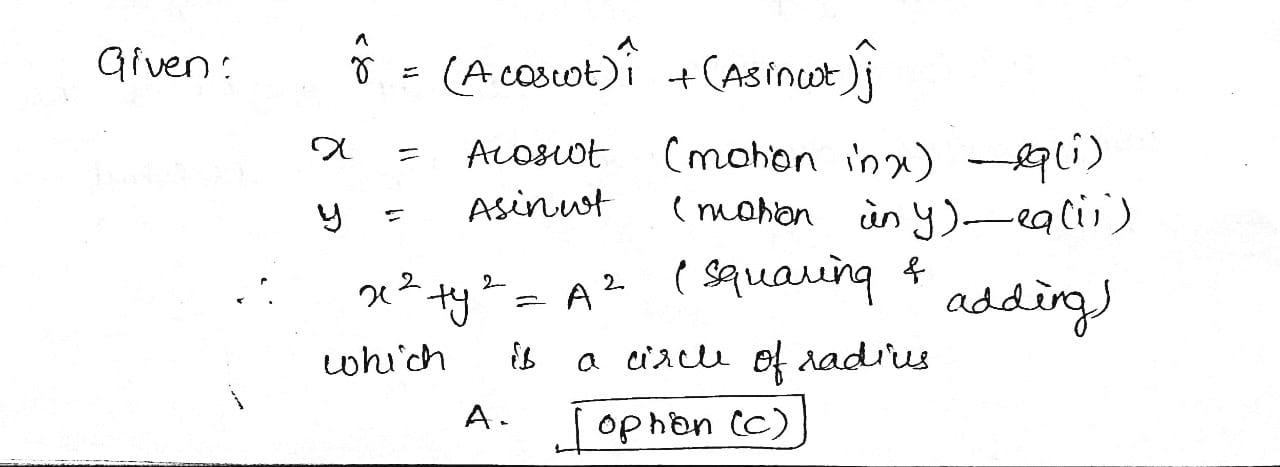 Given: r̂ = (A cosωt) î + (Asinωt) ĵ
x = Acosωt (motion in x) — eq(i)
y = Asinωt (motion in y) — eq(ii)
∴ x² + y² = A² (squaring & adding)
which is a circle of radius
A. option (c)